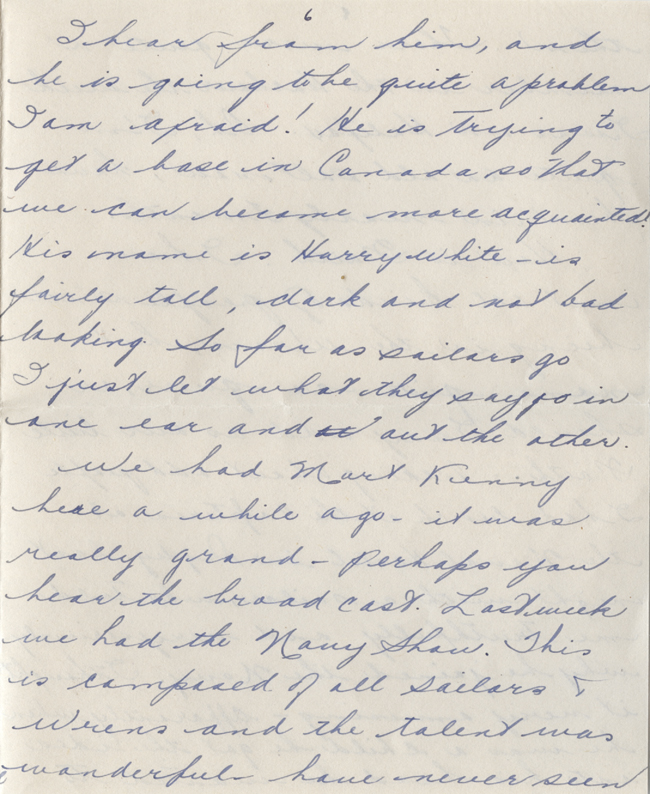 6
I hear from him, and
he is going to be quite a problem
I am afraid! He is trying to
get a base in Canada so that
we can become more acquainted!
His name is Harry White - is
fairly tall, dark and not bad
looking. So far as sailors go
I just let what they say go in
one ear and out the other.
We had Mart Kenny
here a while ago - it was
really grand - Perhaps you
hear the broad cast. Last week
we had the Navy Show. This
is composed of all sailors &
Wrens and the talent was
wonderful - have never seen